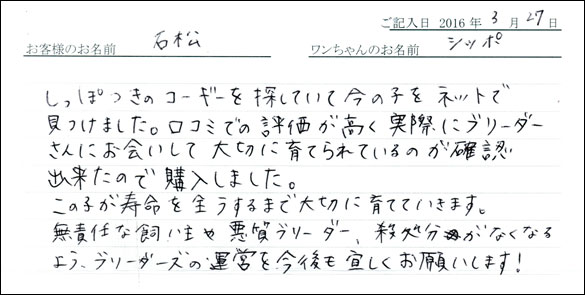 ご記入日 2016年 3月 27日
お客様のお名前 石松 ワンちゃんのお名前 シッポ
しっぽつきのコーギーを探していて今の子をネットで
見つけました。口コミでの評価が高く実際にブリーダー
さんにお会いして大切に育てられているのが確認
出来たので購入しました。
この子が寿命を全うするまで大切に育てていきます。
無責任な飼い主や悪質ブリーダー、殺処分がなくなる
よう、ブリーダーズの運営を今後も宜しくお願いします！